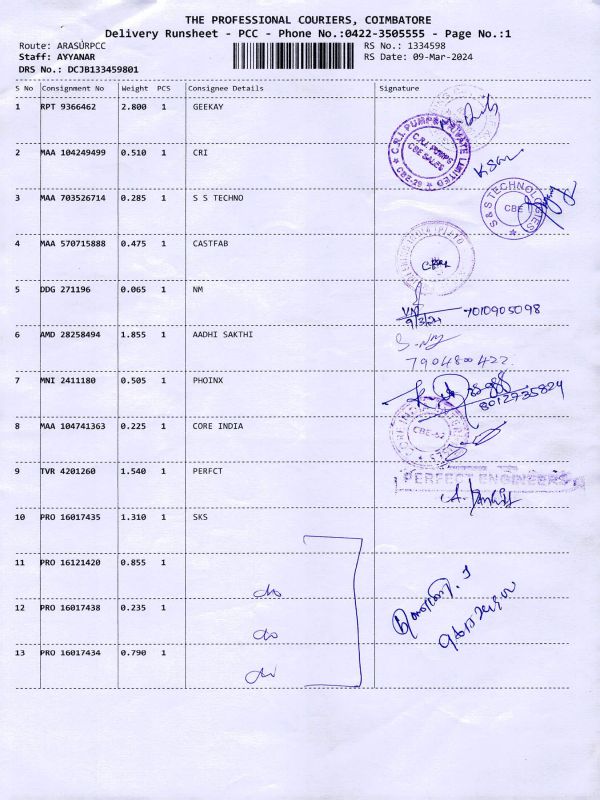 THE PROFESSIONAL COURIERS, COIMBATORE
Delivery Runsheet - PCC - Phone No.:0422-3505555 - Page No.:1
Route: ARASURPCC
RS No.: 1334598
Staff: AYYANAR
RS Date: 09-Mar-2024
DRS No.: DCJB133459801
S No Consignment No Weight PCS Consignee Details Signature
1 RPT 9366462 2.800 1 GEEKAY
2 MAA 104249499 0.510 1 CRI
C.R.I. PUMPS PRIVATE LIMITED
C.R.I. PUMPS
CBE SALES
CBE-29
3 MAA 703526714 0.285 1 S S TECHNO
S&S TECHNOLOGIES
CBE
4 MAA 570715888 0.475 1 CASTFAB
5 DDG 271196 0.065 1 NM
7010905098
9/3/24
6 AMD 28258494 1.855 1 AADHI SAKTHI
7904800422
7 MNI 2411180 0.505 1 PHOINX
8012735824
8 MAA 104741363 0.225 1 CORE INDIA
CBE-62
9 TVR 4201260 1.540 1 PERFCT
PERFECT ENGINEERS
10 PRO 16017435 1.310 1 SKS
11 PRO 16121420 0.855 1
do
12 PRO 16017438 0.235 1
do
13 PRO 16017434 0.790 1
do